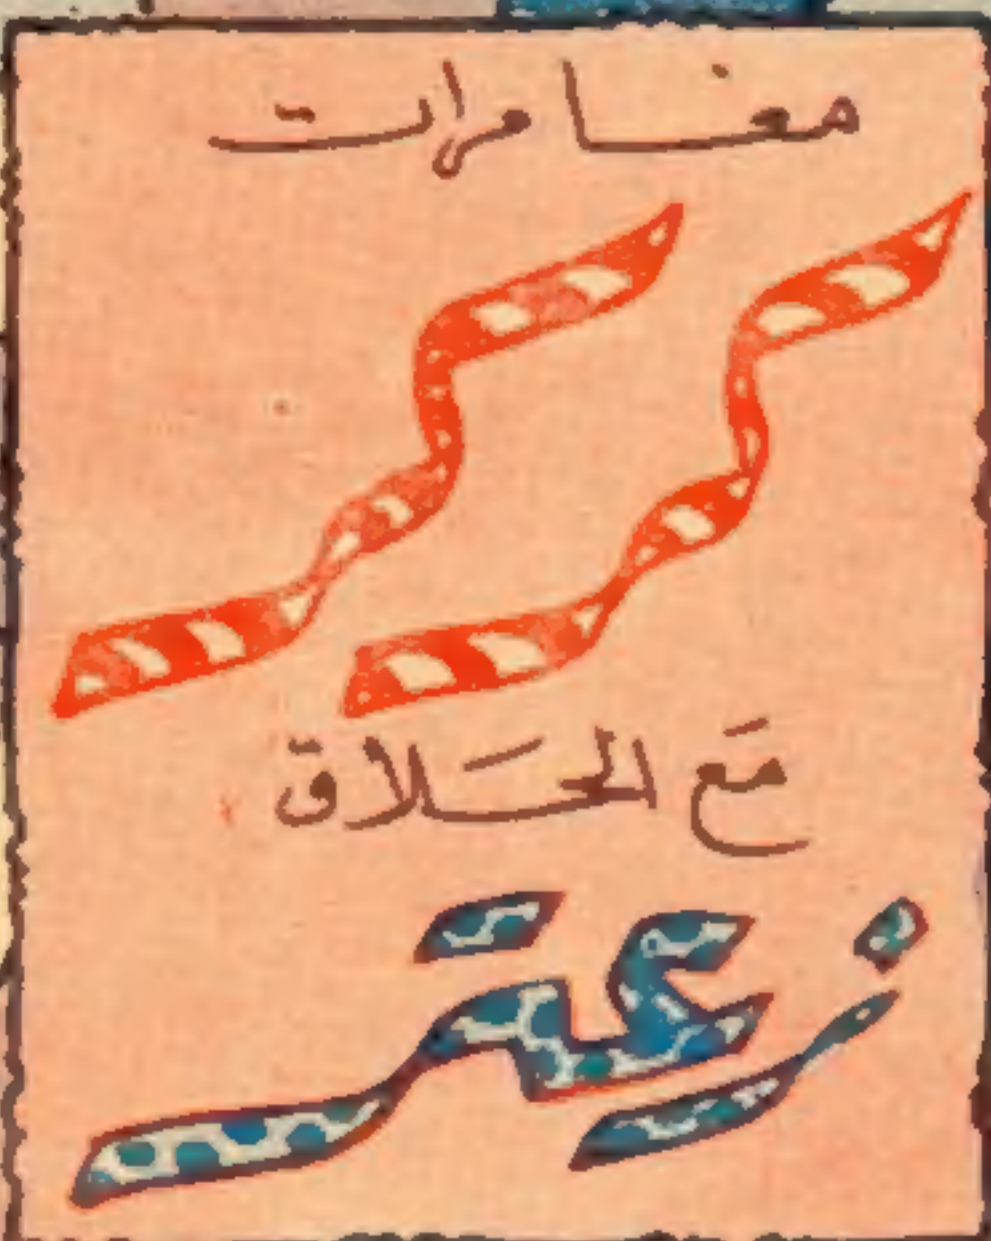 مغامرات
كركر
مَع الحَلاق
زعتر